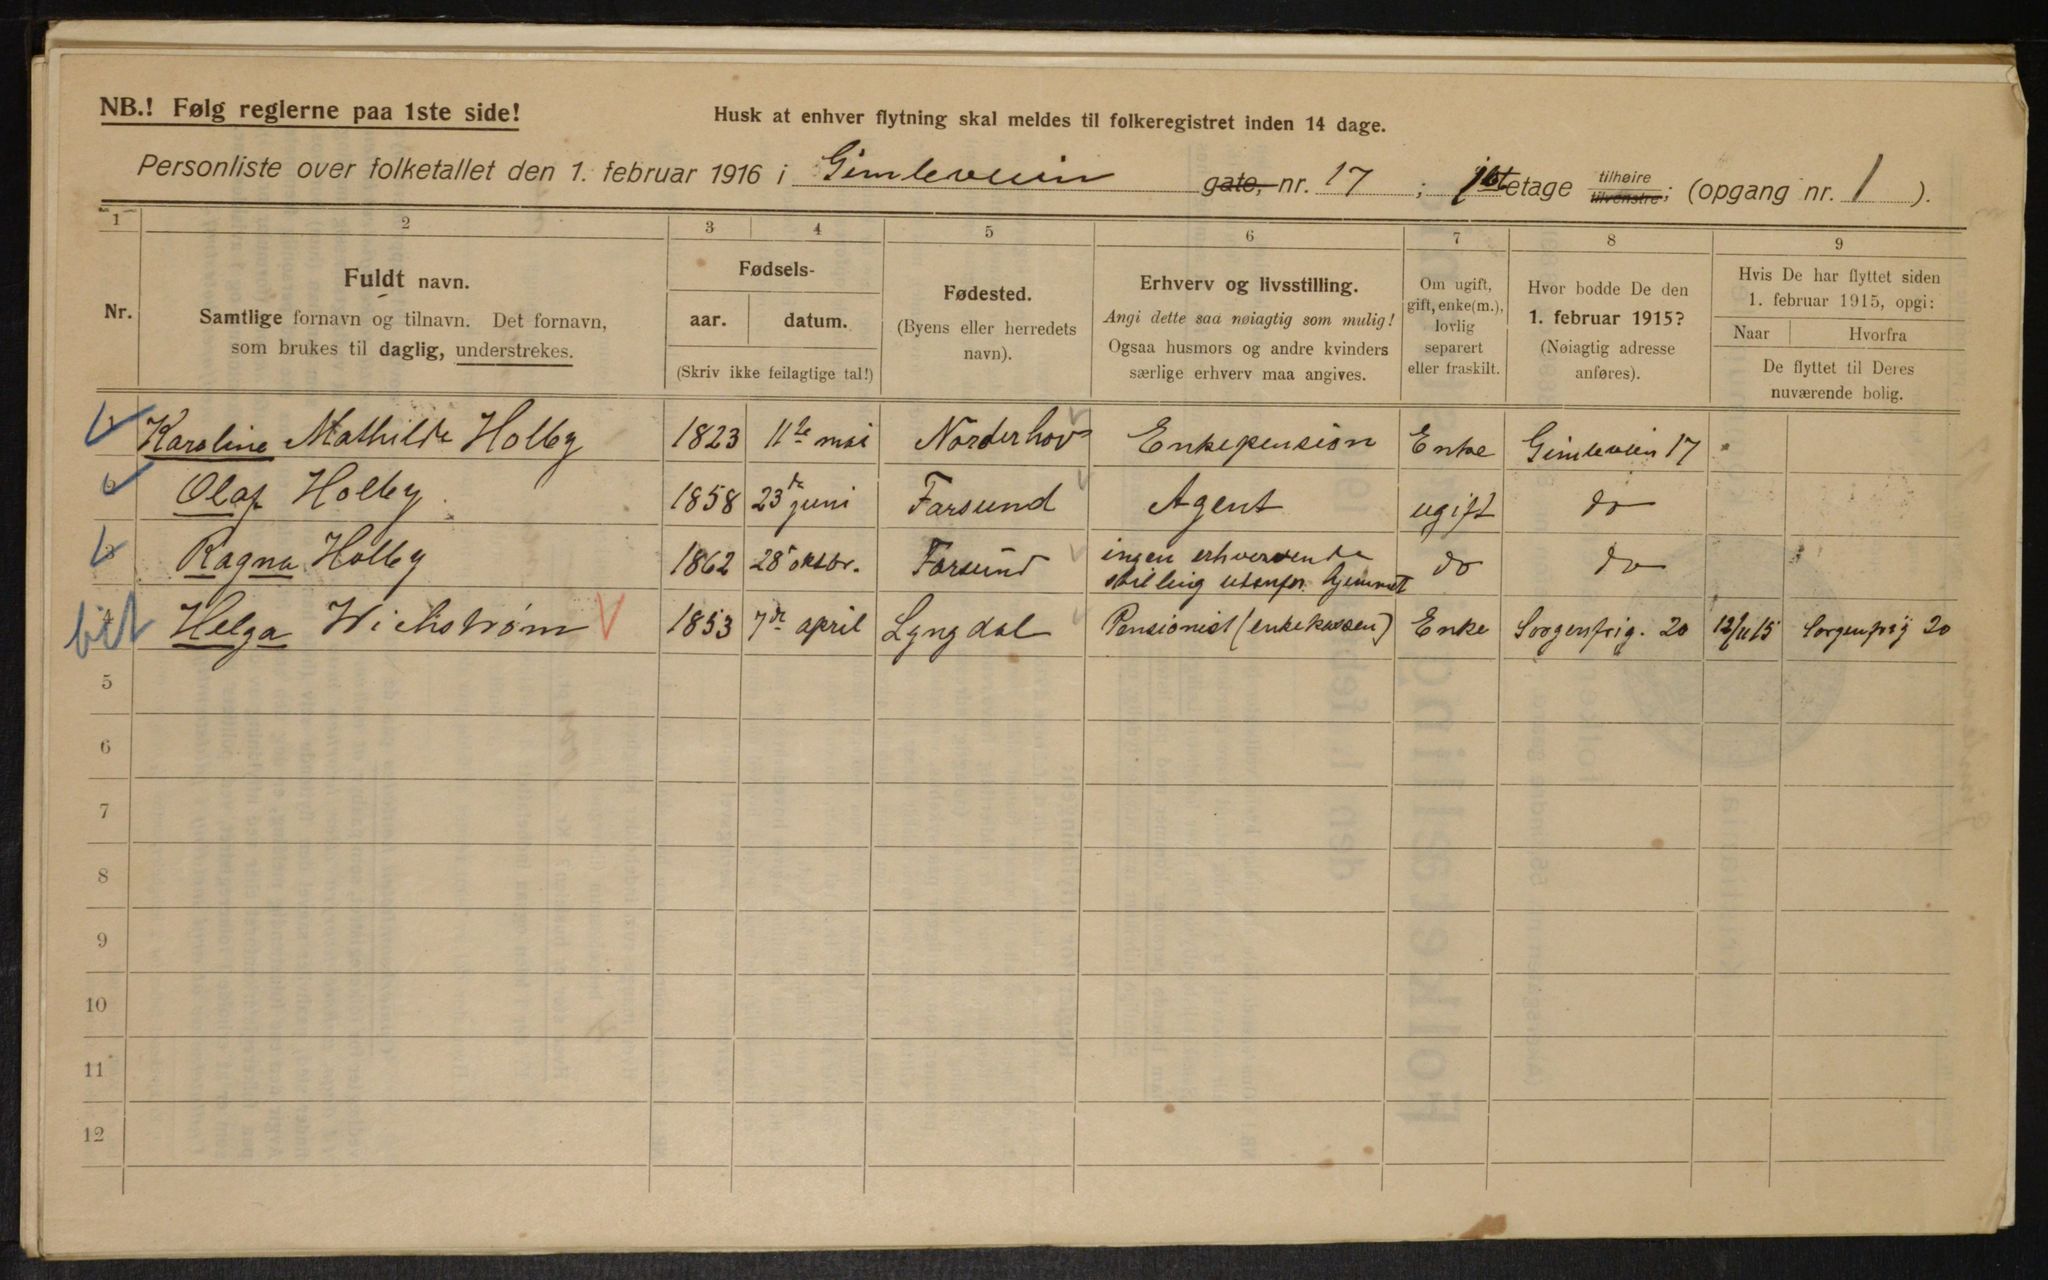 NB.! Følg reglerne paa 1ste side!
Husk at enhver flytning skal meldes til folkeregistret inden 14 dage.
Personliste over folketallet den 1. februar 1916 i Gimleveien gate, nr. 17 ; 1ste etage tilhøire tilvenstre; (opgang nr. 1 ).
1 2 3 4 5 6 7 8 9
Nr.
Fuldt navn.
Samtlige fornavn og tilnavn. Det fornavn,
som brukes til daglig, understrekes.
Fødsels-
aar. datum.
(Skriv ikke feilagtige tal!)
Fødested.
(Byens eller herredets
navn).
Erhverv og livsstilling.
Angi dette saa nøiagtig som mulig!
Ogsaa husmors og andre kvinders
særlige erhverv maa angives.
Om ugift,
gift, enke(m.),
lovlig
separert
eller fraskilt.
Hvor bodde De den
1. februar 1915?
(Nøiagtig adresse
anføres).
Hvis De har flyttet siden
1. februar 1915, opgi:
Naar Hvorfra
De flyttet til Deres
nuværende bolig.
1 Karoline Mathilde Holby 1823 11te mai Norderhov Enkepension Enke Gimleveien 17
2 Olaf Holby 1858 23de juni Farsund Agent ugift do
3 Ragna Holby 1862 28 oktbr. Farsund ingen erhvervende
stilling utenfor hjemmet do do
bet Helga Wichstrøm 1853 7de april Lyngdal Pensionist (enkekassen) Enke Sorgenfrig. 20 12/11 15 Sorgenfrig 20
5
6
7
8
9
10
11
12